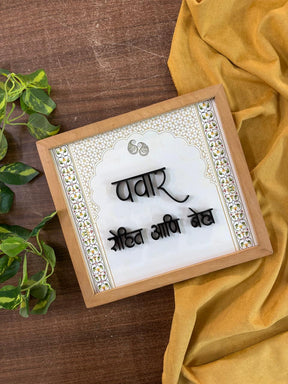 पवार
रोहित आणि नेहा